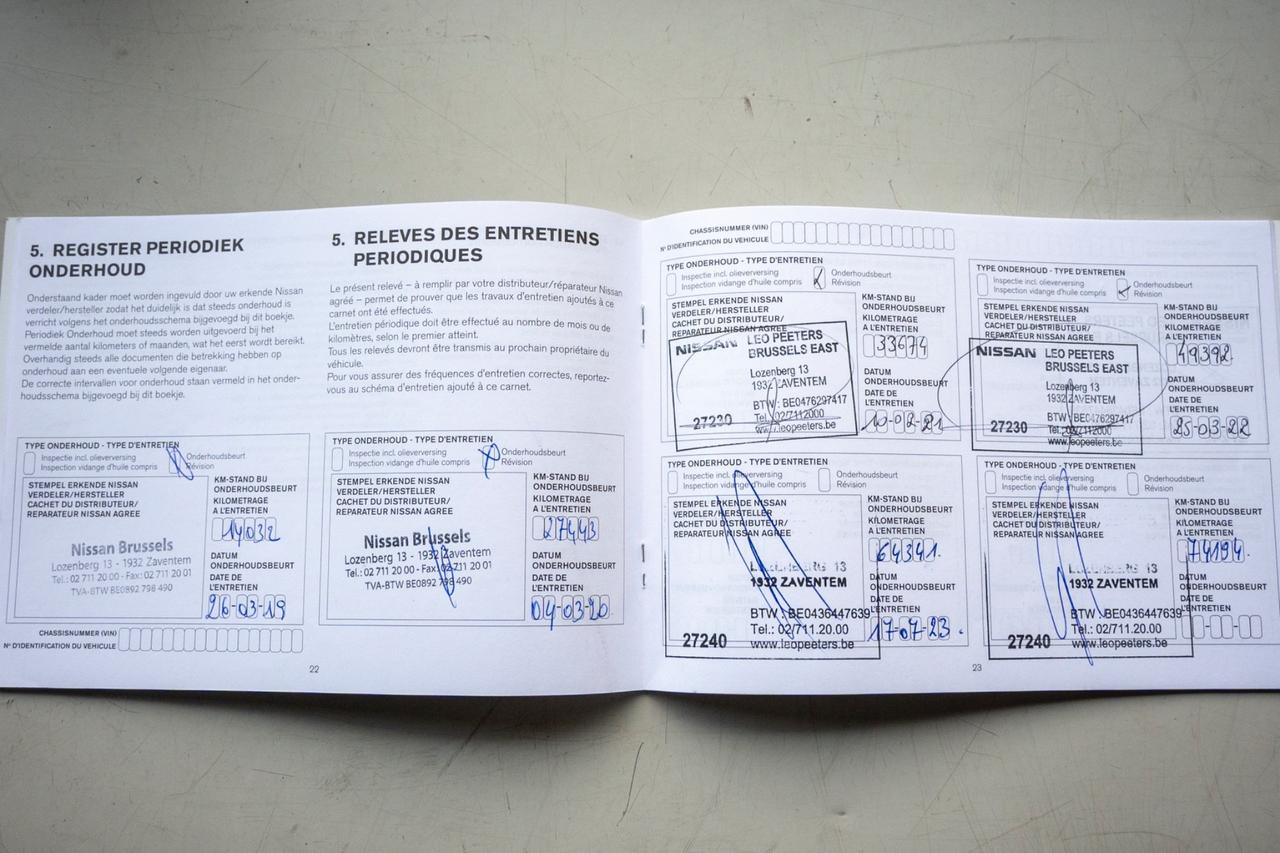 5. REGISTER PERIODIEK
ONDERHOUD
Onderstaand kader moet worden ingevuld door uw erkende Nissan
verdeler/hersteller zodat het duidelijk is dat steeds onderhoud is
verricht volgens het onderhoudsschema bijgevoegd bij dit boekje.
Periodiek Onderhoud moet steeds worden uitgevoerd bij het
vermelde aantal kilometers of maanden, wat het eerst wordt bereikt.
Overhandig steeds alle documenten die betrekking hebben op
onderhoud aan een eventuele volgende eigenaar.
De correcte intervallen voor onderhoud staan vermeld in het onder-
houdsschema bijgevoegd bij dit boekje.
5. RELEVES DES ENTRETIENS
PERIODIQUES
Le présent relevé – à remplir par votre distributeur/réparateur Nissan
agréé – permet de prouver que les travaux d'entretien ajoutés à ce
carnet ont été effectués.
L'entretien périodique doit être effectué au nombre de mois ou de
kilomètres, selon le premier atteint.
Tous les relevés devront être transmis au prochain propriétaire du
véhicule.
Pour vous assurer des fréquences d'entretien correctes, reportez-
vous au schéma d'entretien ajouté à ce carnet.
TYPE ONDERHOUD - TYPE D'ENTRETIEN
Inspectie incl. olieverversing
Inspection vidange d'huile compris
Onderhoudsbeurt
Révision
STEMPEL ERKENDE NISSAN
VERDELER/HERSTELLER
CACHET DU DISTRIBUTEUR/
REPARATEUR NISSAN AGREE
Nissan Brussels
Lozenberg 13 - 1932 Zaventem
Tel.: 02 711 20 00 - Fax: 02 711 20 01
TVA-BTW BE0892 798 490
KM-STAND BIJ
ONDERHOUDSBEURT
KILOMETRAGE
A L'ENTRETIEN
14032
DATUM
ONDERHOUDSBEURT
DATE DE
L'ENTRETIEN
26-03-19
CHASSISNUMMER (VIN)
N° D'IDENTIFICATION DU VEHICULE
TYPE ONDERHOUD - TYPE D'ENTRETIEN
Inspectie incl. olieverversing
Inspection vidange d'huile compris
Onderhoudsbeurt
Révision
STEMPEL ERKENDE NISSAN
VERDELER/HERSTELLER
CACHET DU DISTRIBUTEUR/
REPARATEUR NISSAN AGREE
Nissan Brussels
Lozenberg 13 - 1932 Zaventem
Tel.: 02 711 20 00 - Fax: 02 711 20 01
TVA-BTW BE0892 798 490
KM-STAND BIJ
ONDERHOUDSBEURT
KILOMETRAGE
A L'ENTRETIEN
27443
DATUM
ONDERHOUDSBEURT
DATE DE
L'ENTRETIEN
04-03-20
22
CHASSISNUMMER (VIN)
N° D'IDENTIFICATION DU VEHICULE
TYPE ONDERHOUD - TYPE D'ENTRETIEN
Inspectie incl. olieverversing
Inspection vidange d'huile compris
Onderhoudsbeurt
Révision
STEMPEL ERKENDE NISSAN
VERDELER/HERSTELLER
CACHET DU DISTRIBUTEUR/
REPARATEUR NISSAN AGREE
NISSAN LEO PEETERS
BRUSSELS EAST
Lozenberg 13
1932 ZAVENTEM
BTW : BE0476297417
27230 Tel.:02/7112000
www.leopeeters.be
KM-STAND BIJ
ONDERHOUDSBEURT
KILOMETRAGE
A L'ENTRETIEN
33674
DATUM
ONDERHOUDSBEURT
DATE DE
L'ENTRETIEN
10-02-21
TYPE ONDERHOUD - TYPE D'ENTRETIEN
Inspectie incl. olieverversing
Inspection vidange d'huile compris
Onderhoudsbeurt
Révision
STEMPEL ERKENDE NISSAN
VERDELER/HERSTELLER
CACHET DU DISTRIBUTEUR/
REPARATEUR NISSAN AGREE
NISSAN LEO PEETERS
BRUSSELS EAST
Lozenberg 13
1932 ZAVENTEM
BTW : BE0476297417
27230 Tel.:02/7112000
www.leopeeters.be
KM-STAND BIJ
ONDERHOUDSBEURT
KILOMETRAGE
A L'ENTRETIEN
49392
DATUM
ONDERHOUDSBEURT
DATE DE
L'ENTRETIEN
25-03-22
TYPE ONDERHOUD - TYPE D'ENTRETIEN
Inspectie incl. olieverversing
Inspection vidange d'huile compris
Onderhoudsbeurt
Révision
STEMPEL ERKENDE NISSAN
VERDELER/HERSTELLER
CACHET DU DISTRIBUTEUR/
REPARATEUR NISSAN AGREE
13
1932 ZAVENTEM
BTW : BE0436447639
Tel.: 02/711.20.00
27240 www.leopeeters.be
KM-STAND BIJ
ONDERHOUDSBEURT
KILOMETRAGE
A L'ENTRETIEN
64341.
DATUM
ONDERHOUDSBEURT
DATE DE
L'ENTRETIEN
17-07-23.
TYPE ONDERHOUD - TYPE D'ENTRETIEN
Inspectie incl. olieverversing
Inspection vidange d'huile compris
Onderhoudsbeurt
Révision
STEMPEL ERKENDE NISSAN
VERDELER/HERSTELLER
CACHET DU DISTRIBUTEUR/
REPARATEUR NISSAN AGREE
13
1932 ZAVENTEM
BTW : BE0436447639
Tel.: 02/711.20.00
27240 www.leopeeters.be
KM-STAND BIJ
ONDERHOUDSBEURT
KILOMETRAGE
A L'ENTRETIEN
74194.
DATUM
ONDERHOUDSBEURT
DATE DE
L'ENTRETIEN
23